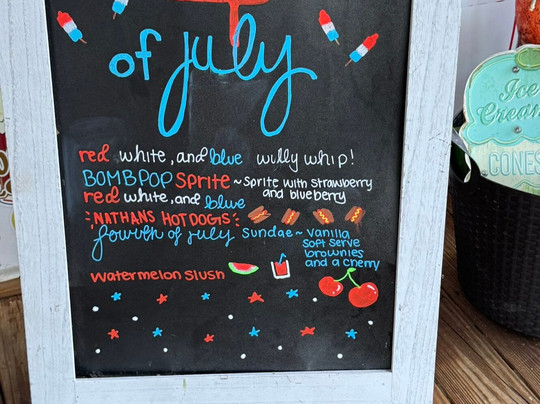 of july
red white, and blue willy whip!
BOMBPOP Sprite ~ Sprite with strawberry
and blueberry
red white, and blue
NATHANS HOTDOGS
fourth of july Sundae ~ vanilla
soft serve
brownies
and a cherry
watermelon slush
Ice
Cream
CONES